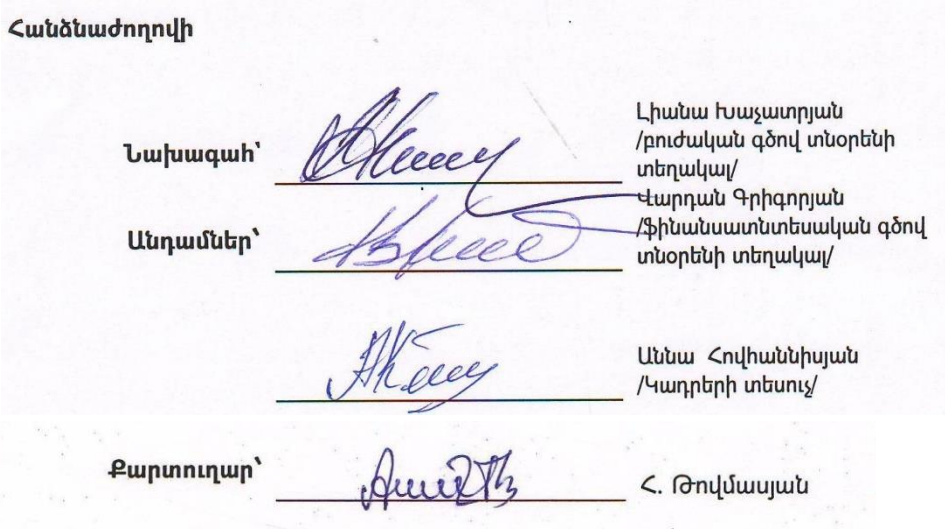 Հանձնաժողովի
Նախագահ՝
Լիանա Խաչատրյան
/բուժական գծով տնօրենի
տեղակալ/
Անդամներ՝
Վարդան Գրիգորյան
/ֆինանսատնտեսական գծով
տնօրենի տեղակալ/
Աննա Հովհաննիսյան
/Կադրերի տեսուչ/
Քարտուղար՝
Հ. Թովմասյան